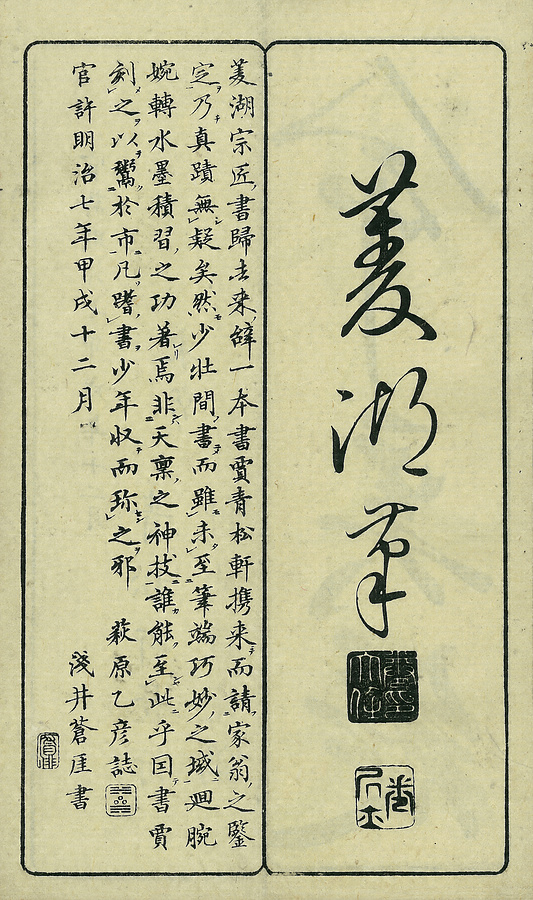 菱湖筆
菱湖宗匠書歸去来辭一本書賈青松軒携来而請家翁之鑒
定乃真蹟無疑矣然少壮間書而雖未至筆端巧妙之域廻腕
婉轉水墨積習之功著焉非天禀之神技誰能至此乎因書賈
刻之以鬻於市凡嗜書少年収而珎之邪　萩原乙彦誌
官許明治七年甲戌十二月　淺井蒼厓書